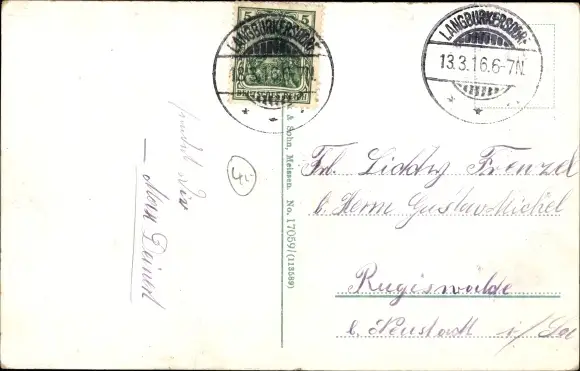 5 5
LANGBURKERSDORF
13.3.16.6-7N.
LANGBURKERSDORF
13.3.16.6-7N.
& Sohn, Meissen. No. 17059/(113589)
Dir
4,-
Frl. Liddy Frenzel
b. Herrn Gustav Michel
Rugiswalde
b. Neustadt i/Sa